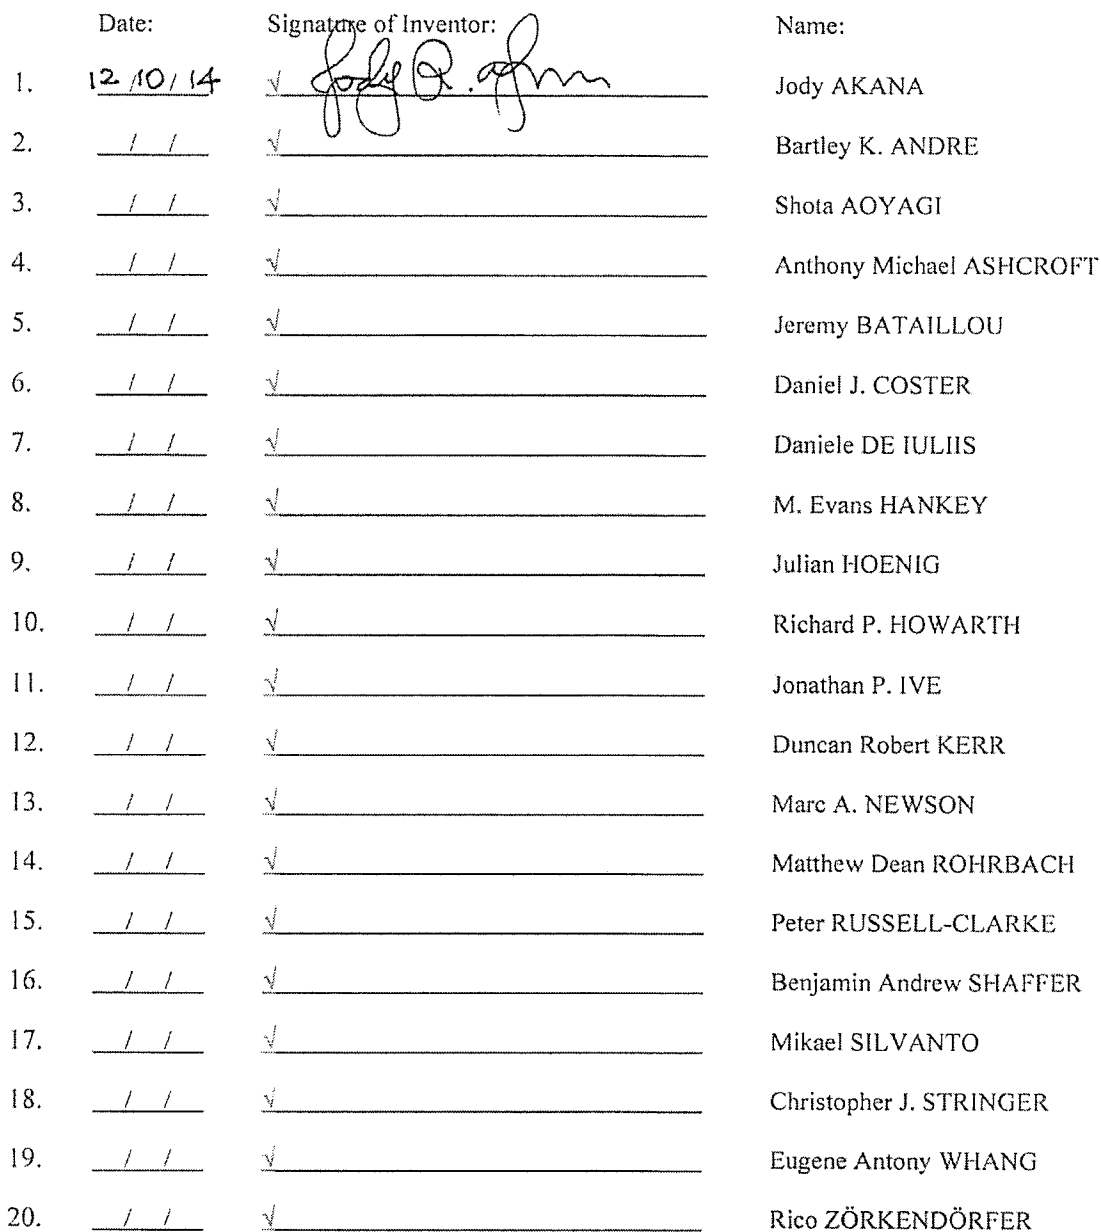 Date: Signature of Inventor: Name:
1. 12/10/14 √ Jody Jody AKANA
2. / / √ Bartley K. ANDRE
3. / / √ Shota AOYAGI
4. / / √ Anthony Michael ASHCROFT
5. / / √ Jeremy BATAILLOU
6. / / √ Daniel J. COSTER
7. / / √ Daniele DE IULIIS
8. / / √ M. Evans HANKEY
9. / / √ Julian HOENIG
10. / / √ Richard P. HOWARTH
11. / / √ Jonathan P. IVE
12. / / √ Duncan Robert KERR
13. / / √ Marc A. NEWSON
14. / / √ Matthew Dean ROHRBACH
15. / / √ Peter RUSSELL-CLARKE
16. / / √ Benjamin Andrew SHAFFER
17. / / √ Mikael SILVANTO
18. / / √ Christopher J. STRINGER
19. / / √ Eugene Antony WHANG
20. / / √ Rico ZÖRKENDÖRFER